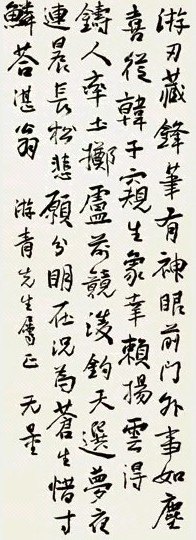 游刃藏鋒筆有神眼前門外事如塵
喜從韓子窺生象幸賴揚雲得
鑄人率土擲盧前競後鈞天選夢夜
連晨長松悲願分明在況為蒼生惜寸
鱗答湛翁 游青先生屬正 无量